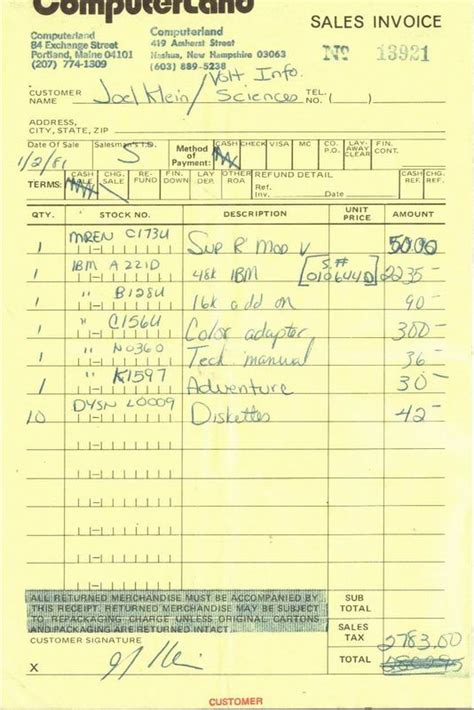 ComputerLand
SALES INVOICE
Computerland
84 Exchange Street
Portland, Maine 04101
(207) 774-1309
Computerland
419 Amherst Street
Nashua, New Hampshire 03063
(603) 889-5238
No 13921
CUSTOMER NAME Joel Klein / Volt Info. Sciences TEL. NO. ( )
ADDRESS,
CITY, STATE, ZIP
Date Of Sale Salesman's I.D. Method of Payment: CASH CHECK VISA MC CO. P.O. LAY-AWAY CLEAR FIN. CONT.
S
TERMS: CASH SALE CHG. SALE RE-FUND FIN. DOWN LAY DEP. OTHER ROA REFUND DETAIL Ref. Inv. Date CASH REF. CH. REF.
QTY. STOCK NO. DESCRIPTION UNIT PRICE AMOUNT
1 MREN C173U Sup R Mod V 50.00
1 IBM A221D 48k IBM S.# 2235-
1 " B128U 16k add on 90-
1 " C156U Color adapter 300-
1 " N0360 Tech. manual 36-
1 " K1597 Adventure 30-
10 DYSN L0009 Diskettes 42-
ALL RETURNED MERCHANDISE MUST BE ACCOMPANIED BY
THIS RECEIPT. RETURNED MERCHANDISE MAY BE SUBJECT
TO REPACKAGING CHARGE UNLESS ORIGINAL CARTONS
AND PACKAGING ARE RETURNED INTACT.
SUB TOTAL
SALES TAX 2783.00
CUSTOMER SIGNATURE
X
TOTAL
CUSTOMER